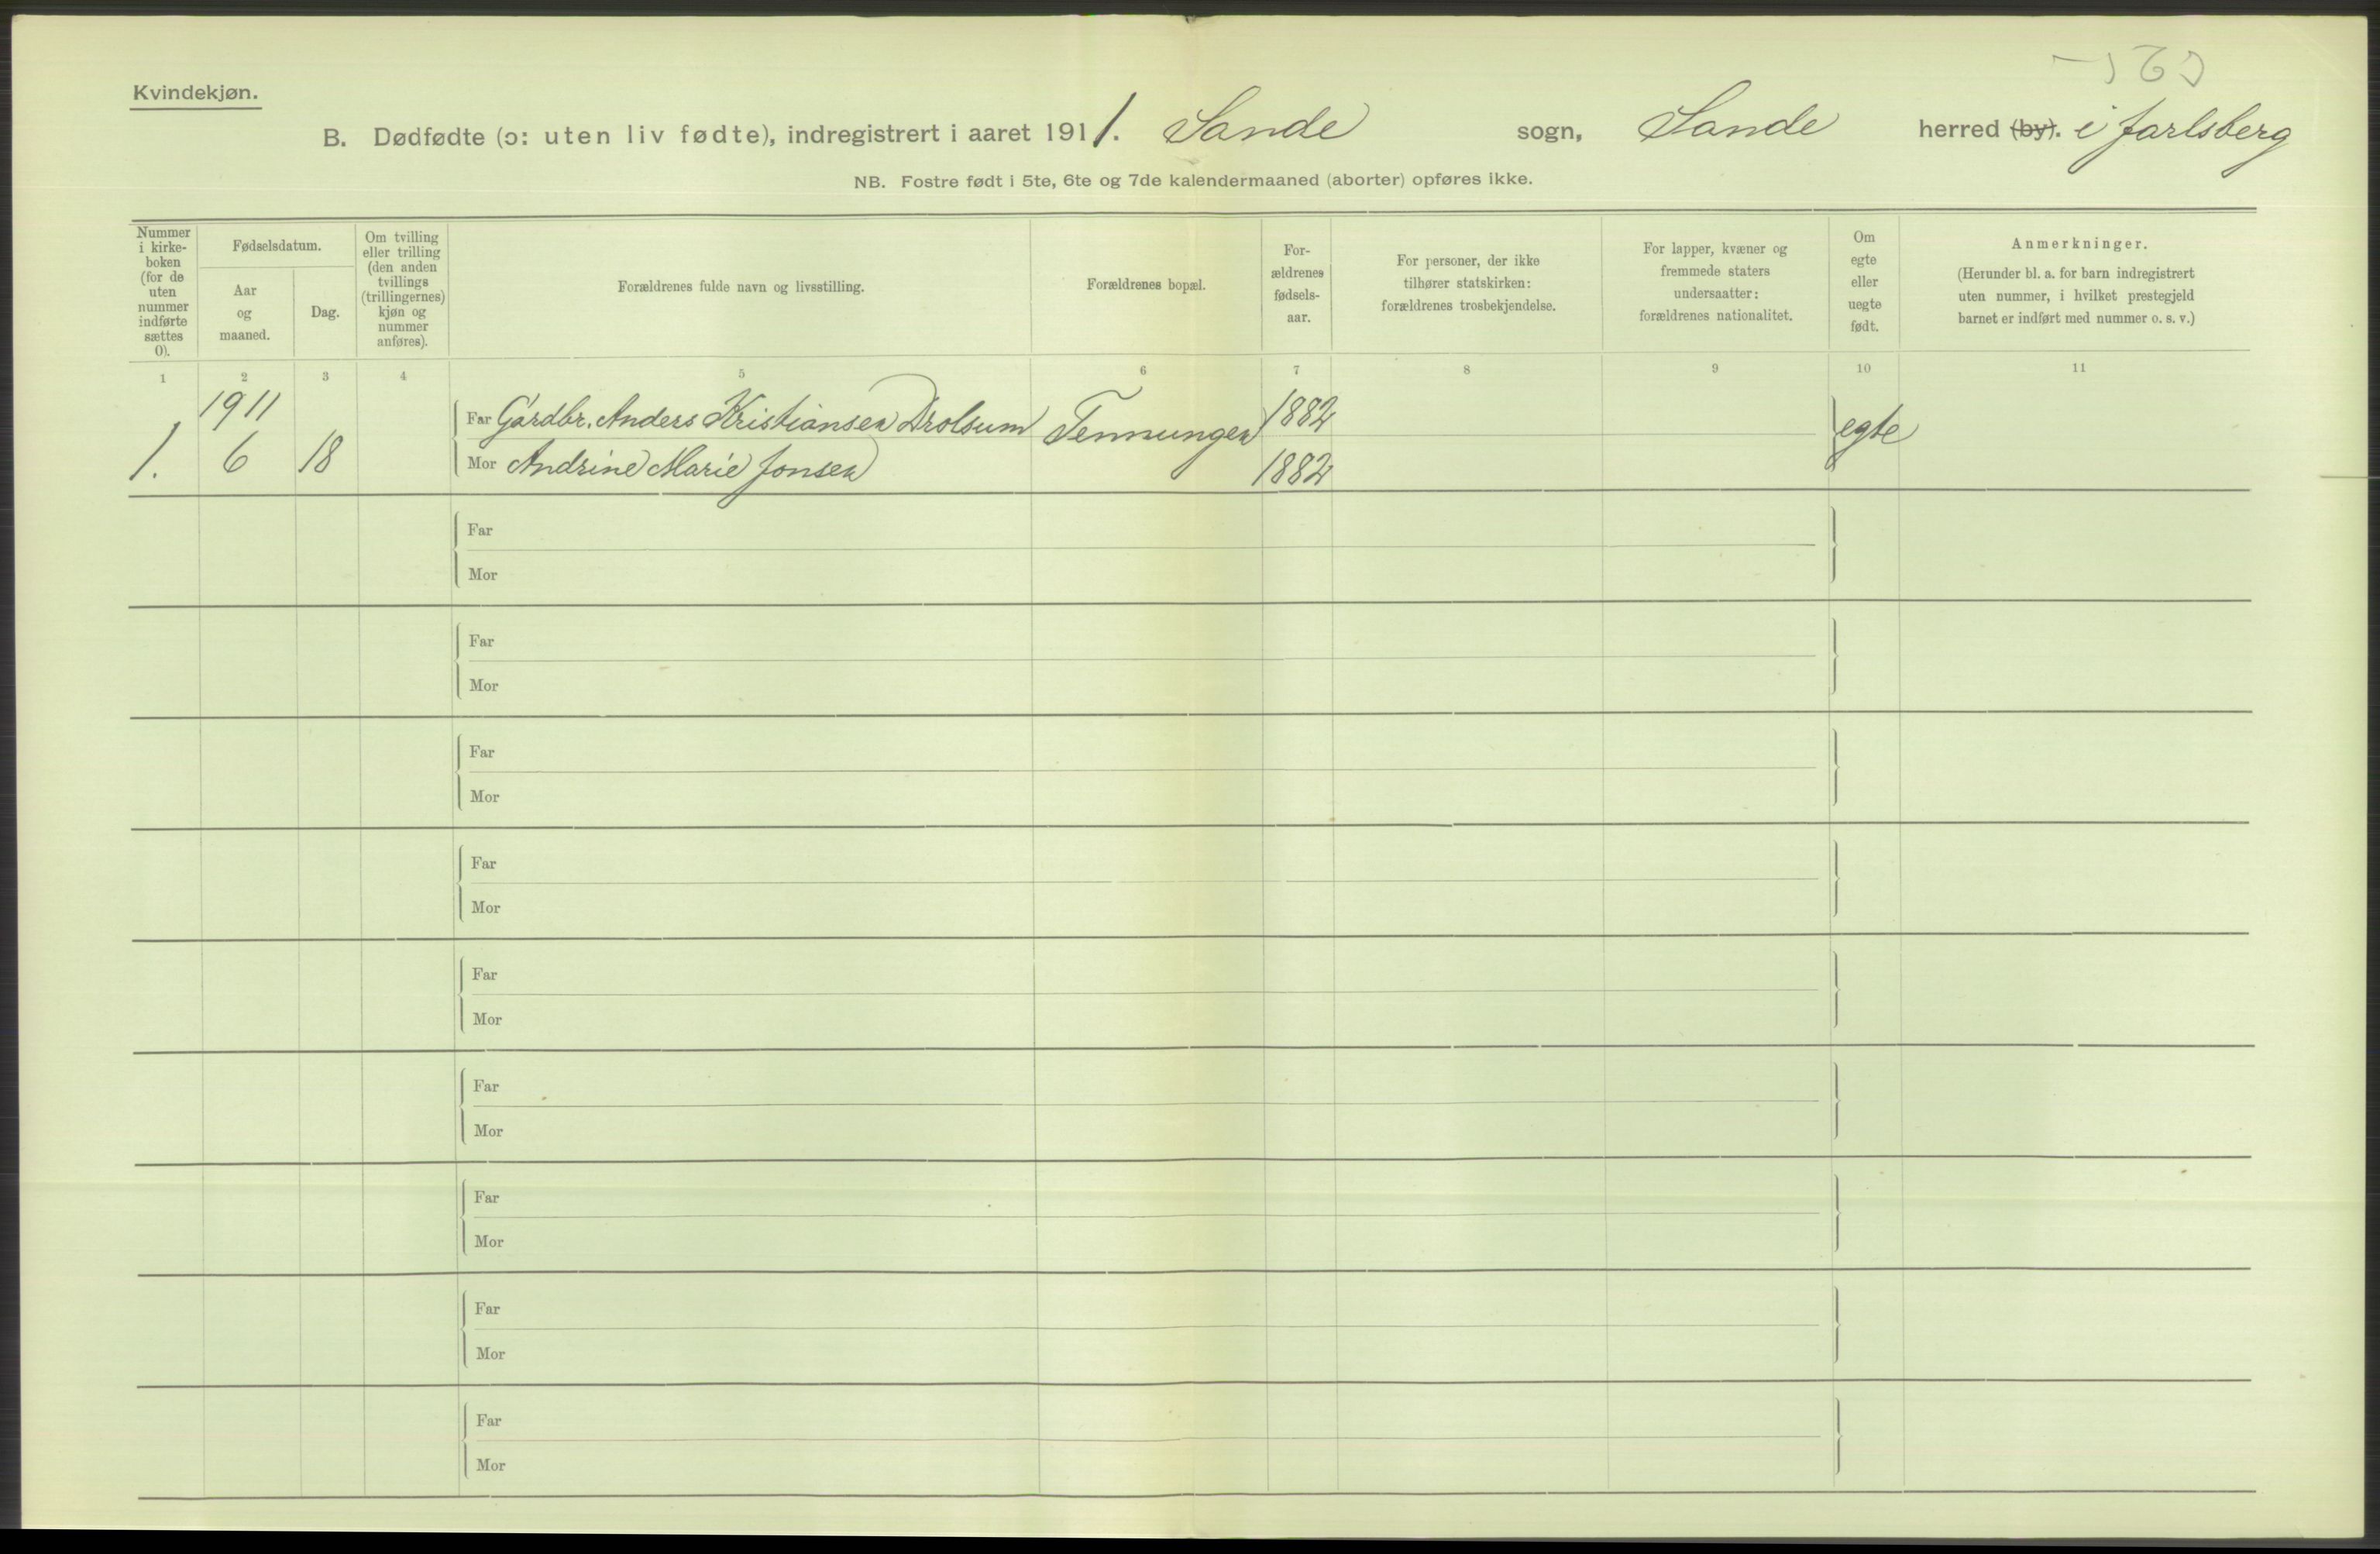 Kvindekjøn.
B. Dødfødte (ɔ: uten liv fødte), indregistrert i aaret 1911. Sande sogn, Sande herred (by). i Jarlsberg
NB. Fostre født i 5te, 6te og 7de kalendermaaned (aborter) opføres ikke.
Nummer i kirke-boken (for de uten nummer indførte sættes 0).
Fødselsdatum.
Aar og maaned.
Dag.
Om tvilling eller trilling (den anden tvillings (trillingernes) kjøn og nummer anføres).
Forældrenes fulde navn og livsstilling.
Forældrenes bopæl.
For-ældrenes fødsels-aar.
For personer, der ikke tilhører statskirken: forældrenes trosbekjendelse.
For lapper, kvæner og fremmede staters undersaatter: forældrenes nationalitet.
Om egte eller uegte født.
Anmerkninger.
(Herunder bl. a. for barn indregistrert uten nummer, i hvilket prestegjeld barnet er indført med nummer o. s. v.)
1 2 3 4 5 6 7 8 9 10 11
1911
Far Gårdbr. Anders Kristiansen Drolsum Tennungen 1882 egte
1. 6 18 Mor Andrine Marie Jonsen 1882
Far
Mor
Far
Mor
Far
Mor
Far
Mor
Far
Mor
Far
Mor
Far
Mor
Far
Mor
Far
Mor